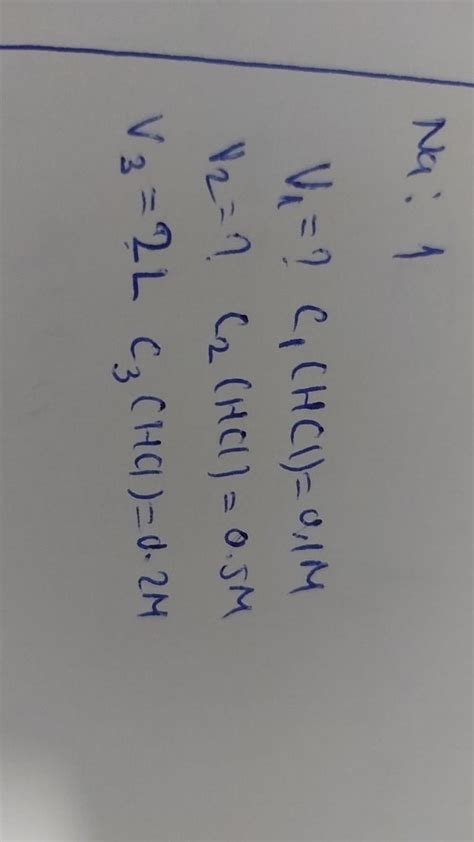 Na: 1
V₁ = ? C₁(HCl) = 0.1M
V₂ = ? C₂(HCl) = 0.5M
V₃ = 2L C₃(HCl) = 0.2M